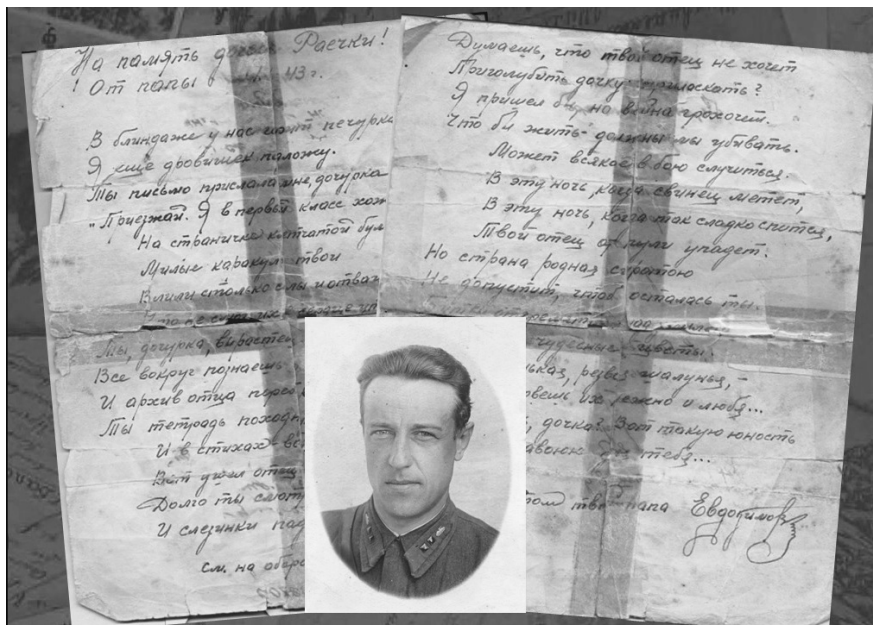 На память дочери Раечки!
! От папы 43 г.
В блиндаже у нас горит печурка
Я еще дровишек положу.
Ты письмо прислала мне, дочурка
„Приезжай. Я в первый класс хож
На страничке клетчатой бум
Милые каракули твои
Влили столько силы и отваг
Ты, дочурка, вырастешь
Все вокруг познаешь
И архив отца переб
Ты тетрадь походн
И в стихах вс
Вот ушел отец
Долго ты смот
И слезинки пад
см. на обор
Думаешь, что твой отец не хочет
Приголубить дочку, приласкать?
Я пришел бы, но война грохочет.
Что би жить должны мы убивать.
Может всякое в бою случиться.
В эту ночь, когда свинец метет,
В эту ночь, когда так сладко спится,
Твой отец от пули упадет.
Но страна родная сиротою
Не допустит, чтоб осталась ты.
чудесные цветы.
нькая, резвая шалунья,-
рвешь их нежно и любя...
, дочка! Вот такую юность
авоюю для тебя...
том твой папа Евдокимов